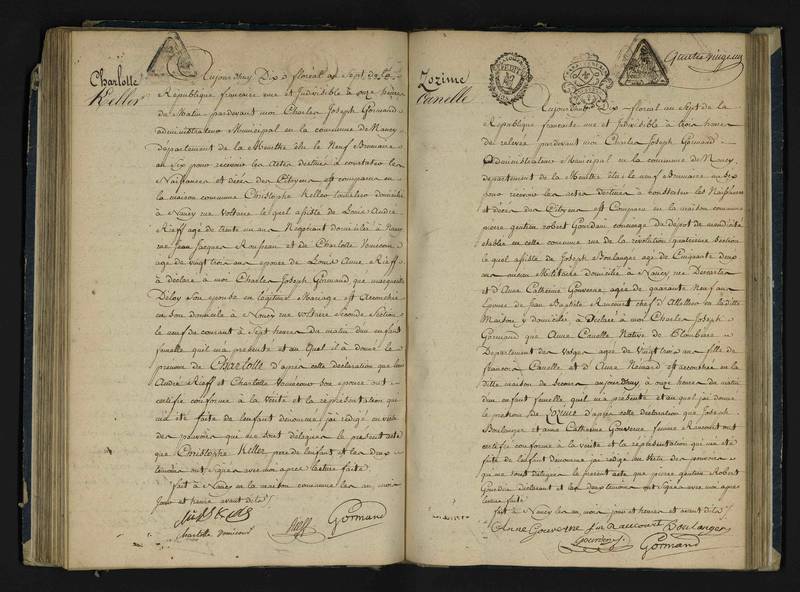 Charlotte
Keller
Aujourdhuy Dix floréal an Sept de la
République francaise une et Indivisible à onze heures
du Matin pardevant moi Charles Joseph Gormand
administrateur Municipal en la commune de Nancy
département de la Meurthe élu le Neuf Brumaire
an Six pour recevoir les actes destinés à constater les
Naissances et décès des Citoyens est comparu en
la maison commune Christophe Keller domicilié
à Nancy rue Voltaire le quel assisté de Louis André
Rieff agé de trente un ans Négotiant domicilié à Nancy
rue Jean Jacques Rousseau et de Charlotte
agée de vingt trois ans epouse de Louis André Rieff
à déclaré à moi Charles Joseph Gormand que marguerite
Deloy Son epouse en légitime Mariage est accouchée
en Son domicile à Nancy rue Voltaire Seconde Section
le neuf du courant à Sept heures du matin d'un enfant
femelle quil m'a présenté et au Quel il à donné le
prenom de Charlotte d'après cette déclaration que Louis
André Rieff et Charlotte Son epouse ont
certifié conforme à la vérité et la réprésentation qui
m'a été faite de l'enfant dénommé j'ai rédigé en vertu
des pouvoirs qui me sont délégués le présent acte
que Christophe Keller pere de l'enfant et les deux
témoins ont Signé avec moi apres lecture faite
fait à Nancy en la maison commune les an, mois
Jour et heure avant dits
Rieff
Gormand
Charlotte
Zozime
Canelle
Aujourdhui Dix floreal an Sept de la
République francaise une et Indivisible à trois heures
de relevée pardevant moi Charles Joseph Gormand
Administrateur Municipal en la commune de Nancy
departement de la Meurthe élu le neuf Brumaire an Six
pour recevoir les actes destinés à constater les Naissances
et décès des Citoyens est Comparu en la maison commune
pierre gentien robert Gourdain concierge du dépot de mendicité
etablie en cette commune rue de la révolution quatrieme Section
le quel assisté de Joseph Boulanger agé de Cinquante deux
ans ancien Militaire domicilié à Nancy rue Descartes
et d'Anne Catherine Gouverne agée de quarante Neuf ans
Epouse de Jean Baptiste Raucourt chef d'attellier en la ditte
Maison y domiciliée à Déclaré à moi Charles Joseph
Gormand que Anne Canelle Native de Plombiere
Département des Vosges agée de Vingt trois ans fille de
francois Canelle et d'Anne est accouchée en la
ditte maison de Secours aujourdhuy à onze heures du matin
d'un enfant femelle quel m'a présenté et auquel j'ai donné
le prénom de Zozime d'après cette déclaration que Joseph
Boulanger et anne Catherine Gouverne femme Raucourt ont
certifié conforme à la vérité et la réprésentation qui m'a été
faite de l'enfant dénommé j'ai redigé en vertu des pouvoirs
qui me sont délégués le présent acte que pierre gentien Robert
Gourdin déclarant et les deux témoins ont Signé avec moi apres
lecture faite
fait à Nancy les an mois jour et heures avant dits
Anne Gouverne fem Raucourt Boulanger
Gourdin
Gormand